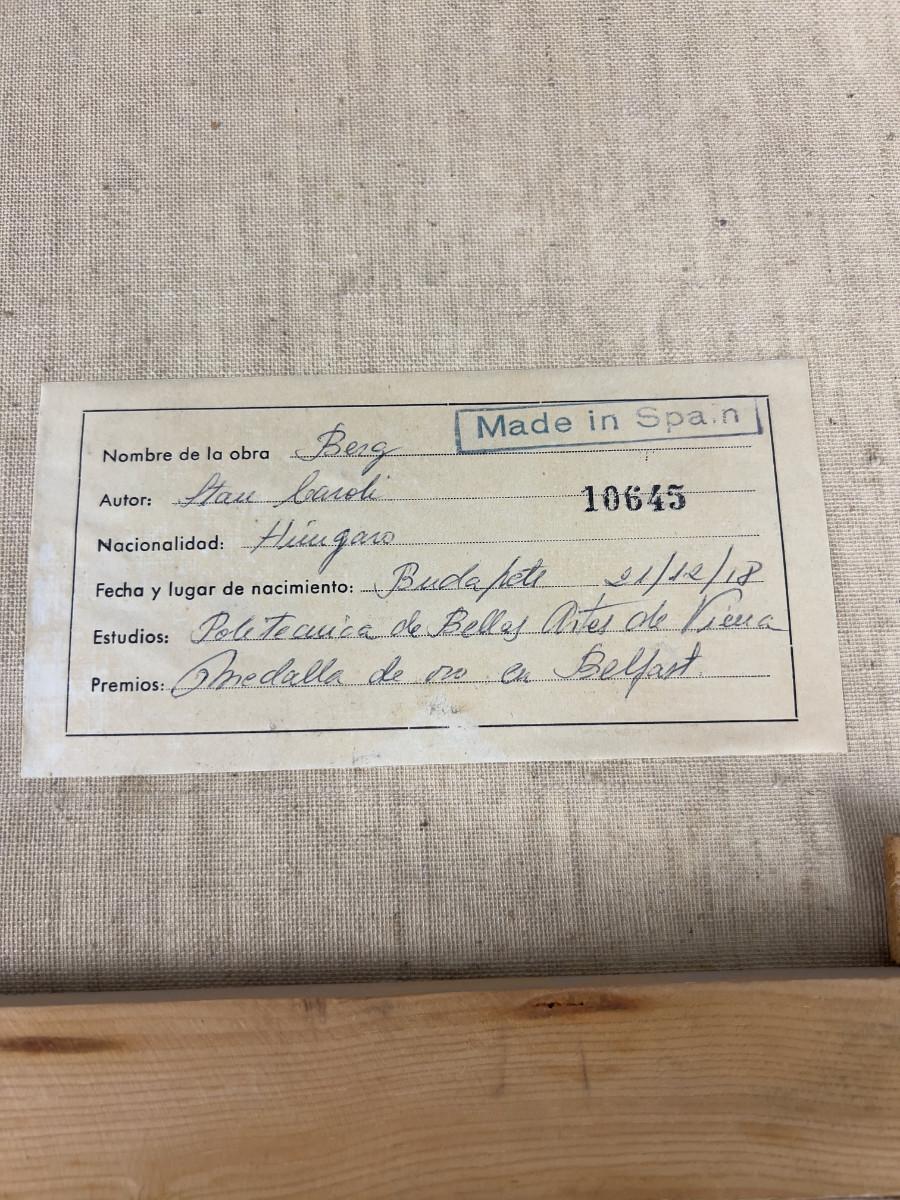 Made in Spain
Nombre de la obra Berg
Autor: Stan Caroli
10645
Nacionalidad: Húngaro
Fecha y lugar de nacimiento: Budapete 21/12/18
Estudios: Politecnica de Bellas Artes de Viena
Premios: Medalla de oro en Belfast.